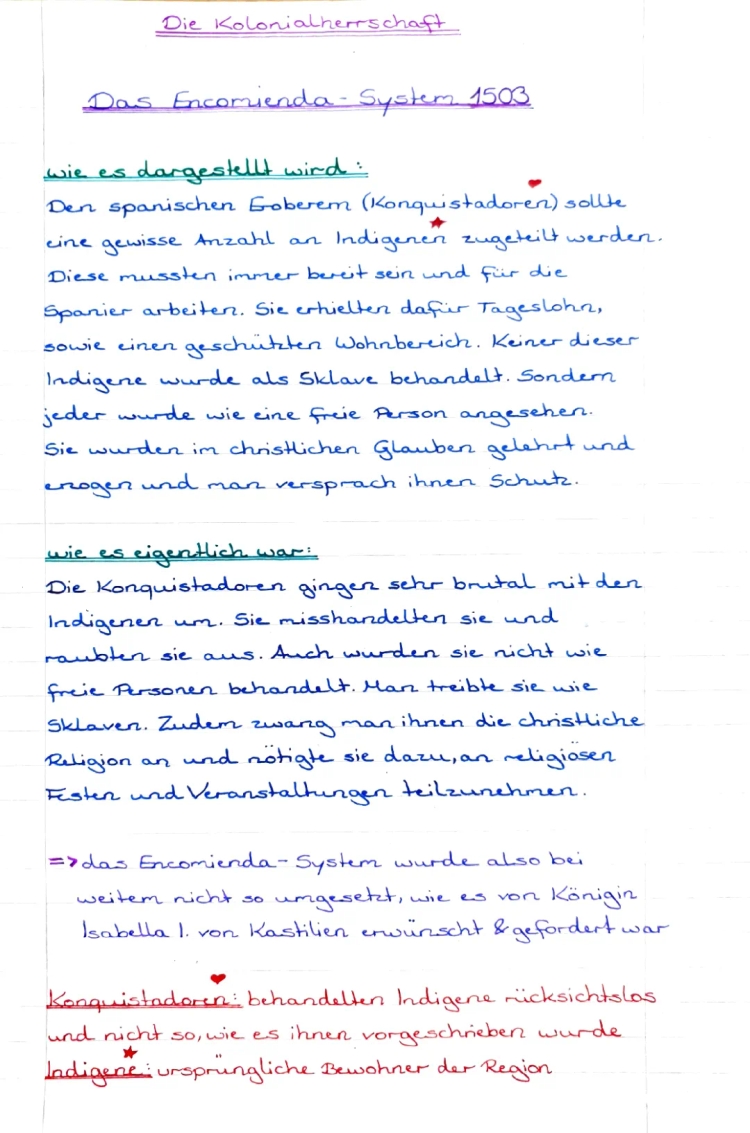 Die Kolonialherrschaft
Das Encomienda-System 1503
wie es dargestellt wird:
Den spanischen Eroberern (Konquistadoren) sollte
eine gewisse Anzahl an Indigenen zugeteilt werden.
Diese mussten immer bereit sein und für die
Spanier arbeiten. Sie erhielten dafür Tageslohn,
sowie einen geschützten Wohnbereich. Keiner dieser
Indigene wurde als Sklave behandelt. Sondern
jeder wurde wie eine freie Person angesehen.
Sie wurden im christlichen Glauben gelehrt und
erzogen und man versprach ihnen Schutz.
wie es eigentlich war:
Die Konquistadoren gingen sehr brutal mit den
Indigenen um. Sie misshandelten sie und
raubten sie aus. Auch wurden sie nicht wie
freie Personen behandelt. Man treibte sie wie
Sklaven. Zudem zwang man ihnen die christliche
Religion an und nötigte sie dazu, an religiösen
Festen und Veranstaltungen teilzunehmen.
=> das Encomienda-System wurde also bei
weitem nicht so umgesetzt, wie es von Königin
Isabella I. von Kastilien erwünscht & gefordert war
Konquistadoren: behandelten Indigene rücksichtslos
und nicht so, wie es ihnen vorgeschrieben wurde
Indigene: ursprüngliche Bewohner der Region